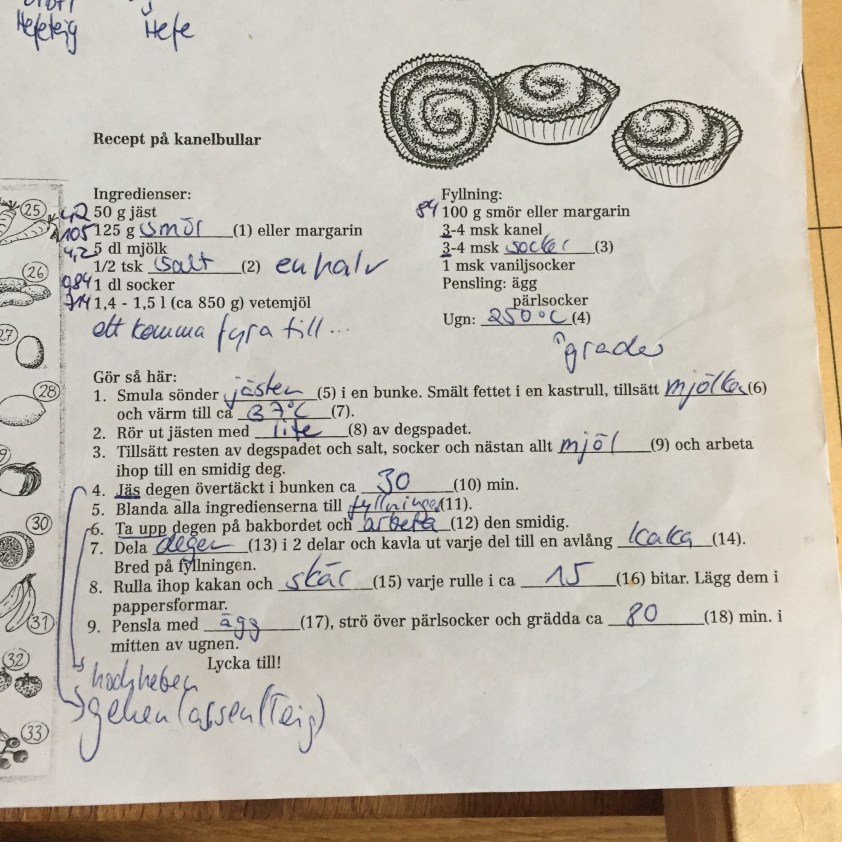 Hefeteig Hefe
Recept på kanelbullar
Ingredienser:
50 g jäst
105 125 g smör (1) eller margarin
4,2 5 dl mjölk
1/2 tsk salt (2) en halv
984 1 dl socker
714 1,4 - 1,5 l (ca 850 g) vetemjöl
ett komma fyra till ...
Fyllning:
84 100 g smör eller margarin
3-4 msk kanel
3-4 msk socker (3)
1 msk vaniljsocker
Pensling: ägg
pärlsocker
Ugn: 250°C (4)
grader
Gör så här:
1. Smula sönder jästen (5) i en bunke. Smält fettet i en kastrull, tillsätt mjölken (6)
och värm till ca 37°C (7).
2. Rör ut jästen med lite (8) av degspadet.
3. Tillsätt resten av degspadet och salt, socker och nästan allt mjöl (9) och arbeta
ihop till en smidig deg.
4. Jäs degen övertäckt i bunken ca 30 (10) min.
5. Blanda alla ingredienserna till fyllningen (11).
6. Ta upp degen på bakbordet och arbeta (12) den smidig.
7. Dela degen (13) i 2 delar och kavla ut varje del till en avlång kaka (14).
Bred på fyllningen.
8. Rulla ihop kakan och skär (15) varje rulle i ca 15 (16) bitar. Lägg dem i
pappersformar.
9. Pensla med ägg (17), strö över pärlsocker och grädda ca 80 (18) min. i
mitten av ugnen.
Lycka till!
hochheben
gehen lassen (Teig)
25
26
27
28
30
31
32
33